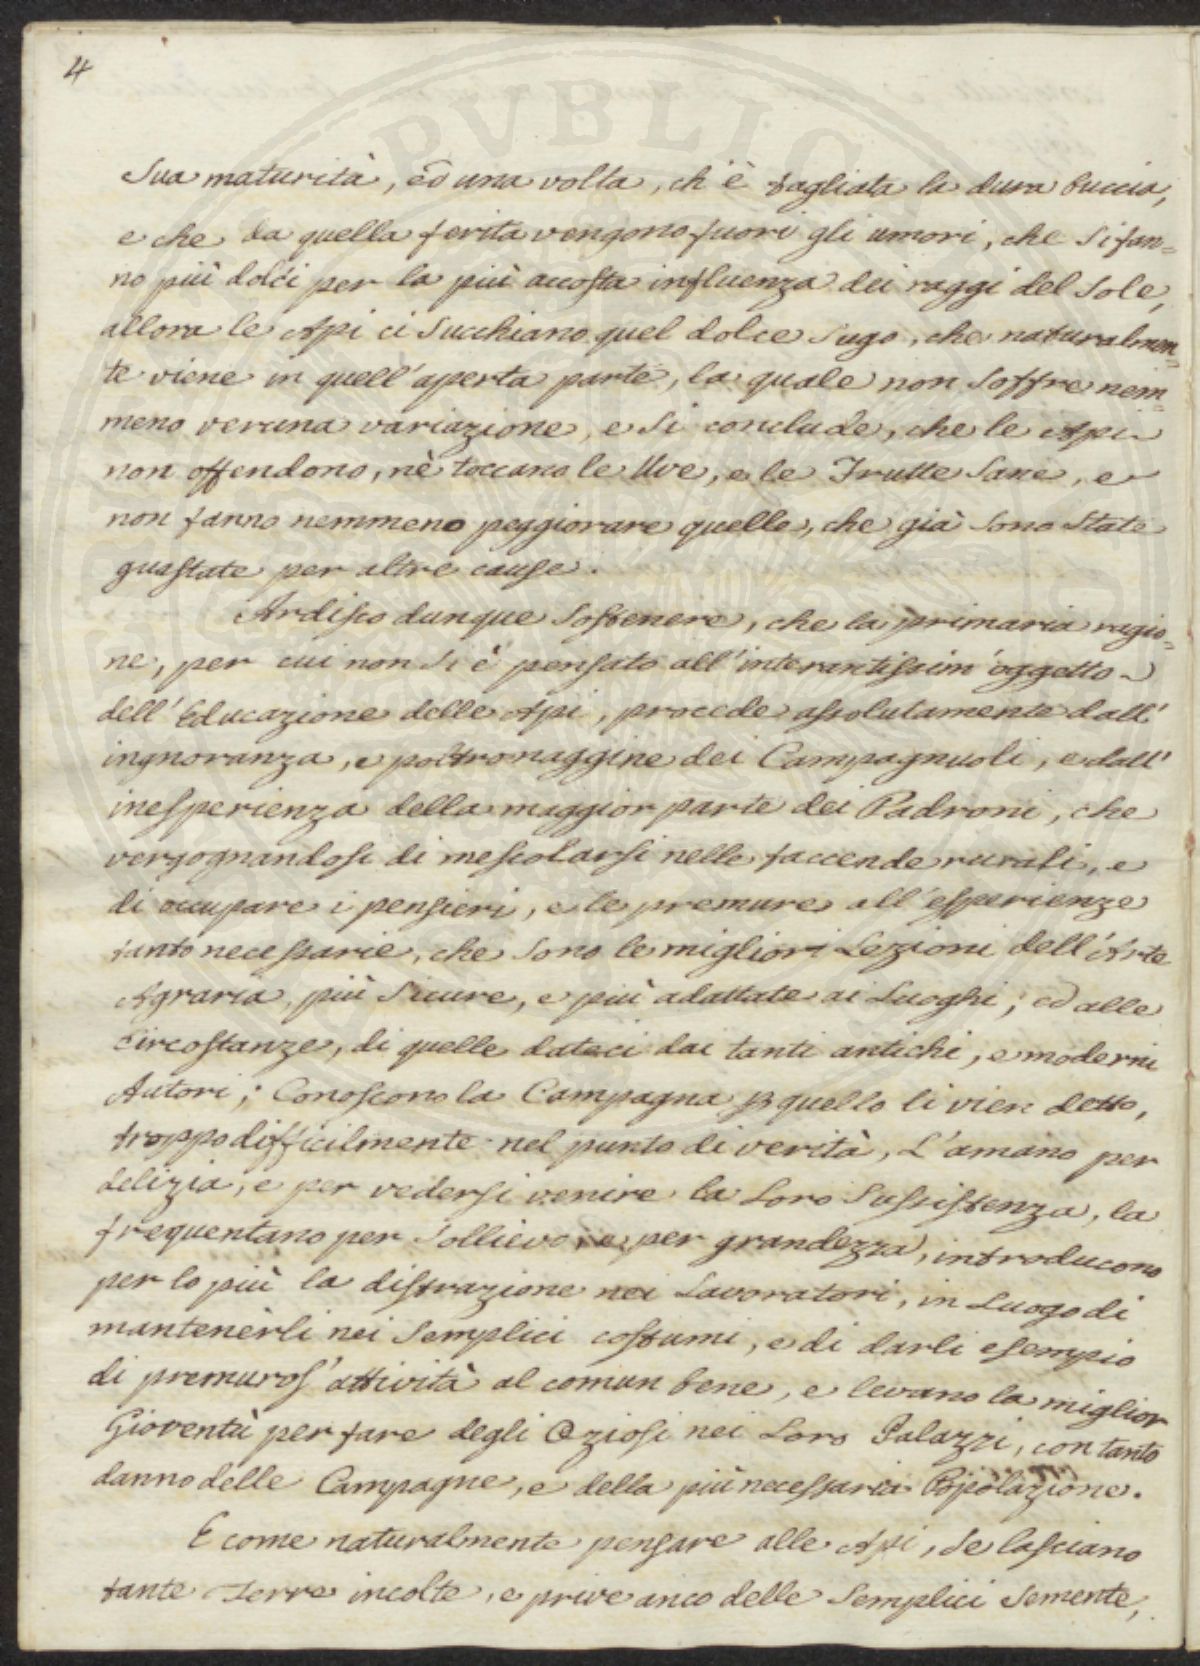 4
Sua maturità, ed una volta, ch'è tagliata la dura buccia,
e che da quella ferita vengono fuori gli umori, che si fan=
no più dolci per la più accosta influenza dei raggi del Sole,
allora le Api ci Succhiano quel dolce Sugo, che naturalmen=
te viene in quell'aperta parte, la quale non Soffre nem=
meno veruna variazione, e Si conclude, che le Api
non offendono, nè toccano le Uve, e le Frutte Sane, e
non fanno nemmeno peggiorare quelle, che già Sono State
guastate per altre cause.
Ardisco dunque Sostenere, che la primaria ragio=
ne, per cui non Si è pensato all'interantissim'oggetto
dell'Educazione delle Api, procede assolutamente dall'
ingnoranza, e poltronaggine dei Campagnuoli, e dall'
inesperienza della maggior parte dei Padroni, che
vergognandosi di mescolarsi nelle faccende rurali, e
di occupare i pensieri, e le premure all'esperienze
tanto necessarie, che Sono le migliori Lezioni dell'Arte
Agraria, più Sicure, e più adattate ai Luoghi, ed alle
circostanze, di quelle dateci dai tanti antichi, e moderni
Autori; Conoscono la Campagna p quello li vien detto,
troppo difficilmente nel punto di verità, L'amano per
delizia, e per vedersi venire la Loro Sussistenza, la
frequentano per Sollievo, e per grandezza, introducono
per lo più la distrazione nei Lavoratori, in Luogo di
mantenerli nei Semplici costumi, e di darli esempio
di premuros'attività al comun bene, e levano la miglior
Gioventù per fare degli Oziosi nei Loro Palazzi, con tanto
danno delle Campagne, e della più necessaria Popolazione.
E come naturalmente pensare alle Api, Se lasciano
tante Terre incolte, e prive anco delle Semplici Semente,
PVBLIC